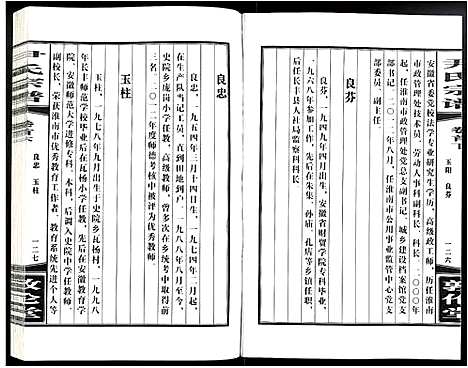 尹氏宗谱
卷首下
玉阳 良芬
一二六
敦伦堂
安徽省委党校法学专业研究生学历，高级政工师，历任淮南
市政管理处技术员、劳动人事科副科长、科长。二〇〇〇年
起，任淮南市政管理处党总支副书记、城乡建设档案馆党支
部书记。二〇一二年八月，任淮南市公用事业监管中心党支
部委员、副主任
良芬
良芬，一九四九年四月出生，安徽省财贸学院专科毕业，
一九六八年参加工作，先后在朱集、孙庙、孔店等乡镇任职，
后任长丰县人社局监察科科长
良忠
良忠，一九五四年三月十四日生，一九七四年二月起，
在生产队当记工员，直到田地到户。一九八八年八月至今，
史院乡庞岗小学任教，高级教师，曾多次在乡统考中取得前
三名。二〇一二年度师德考核中被评为优秀教师
玉柱
玉柱，一九七八年九月出生于史院乡瓦杨村。一九九八
年长丰师范学校毕业后在瓦杨小学任教，先后在安徽教育学
院、安徽师范大学进修专科、本科，后调入史院中学任教师、
副校长，荣获淮南市优秀教育工作者、教育系统先进个人等
尹氏宗谱
卷首下
良忠 玉柱
一二七
敦伦堂